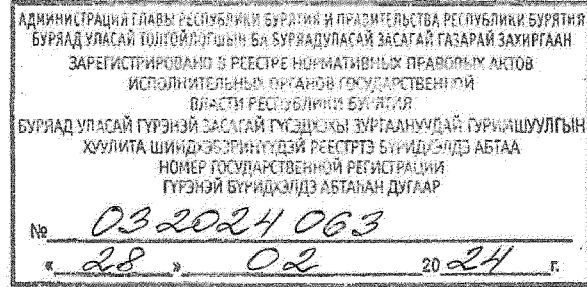 АДМИНИСТРАЦИЯ ГЛАВЫ РЕСПУБЛИКИ БУРЯТИЯ И ПРАВИТЕЛЬСТВА РЕСПУБЛИКИ БУРЯТИЯ
БУРЯАД УЛАСАЙ ТОЛГОЙЛОГШЫН БА БУРЯАД УЛАСАЙ ЗАСАГАЙ ГАЗАРАЙ ЗАХИРГААН
ЗАРЕГИСТРИРОВАНО В РЕЕСТРЕ НОРМАТИВНЫХ ПРАВОВЫХ АКТОВ
ИСПОЛНИТЕЛЬНЫХ ОРГАНОВ ГОСУДАРСТВЕННОЙ
ВЛАСТИ РЕСПУБЛИКИ БУРЯТИЯ
БУРЯАД УЛАСАЙ ГҮРЭНЭЙ ЗАСАГАЙ ГҮСЭДХЭХЫ ЗУРГААНУУДАЙ ГУРИМШУУЛГЫН
ХУУЛИТА ШИИДХЭБЭРИНҮҮДЭЙ РЕЕСТРТЭ БҮРИДХЭЛДЭ АБТАА
НОМЕР ГОСУДАРСТВЕННОЙ РЕГИСТРАЦИИ
ГҮРЭНЭЙ БҮРИДХЭЛДЭ АБТАҺАН ДУГААР
№ 032024063
« 28 » 02 20 24 г.